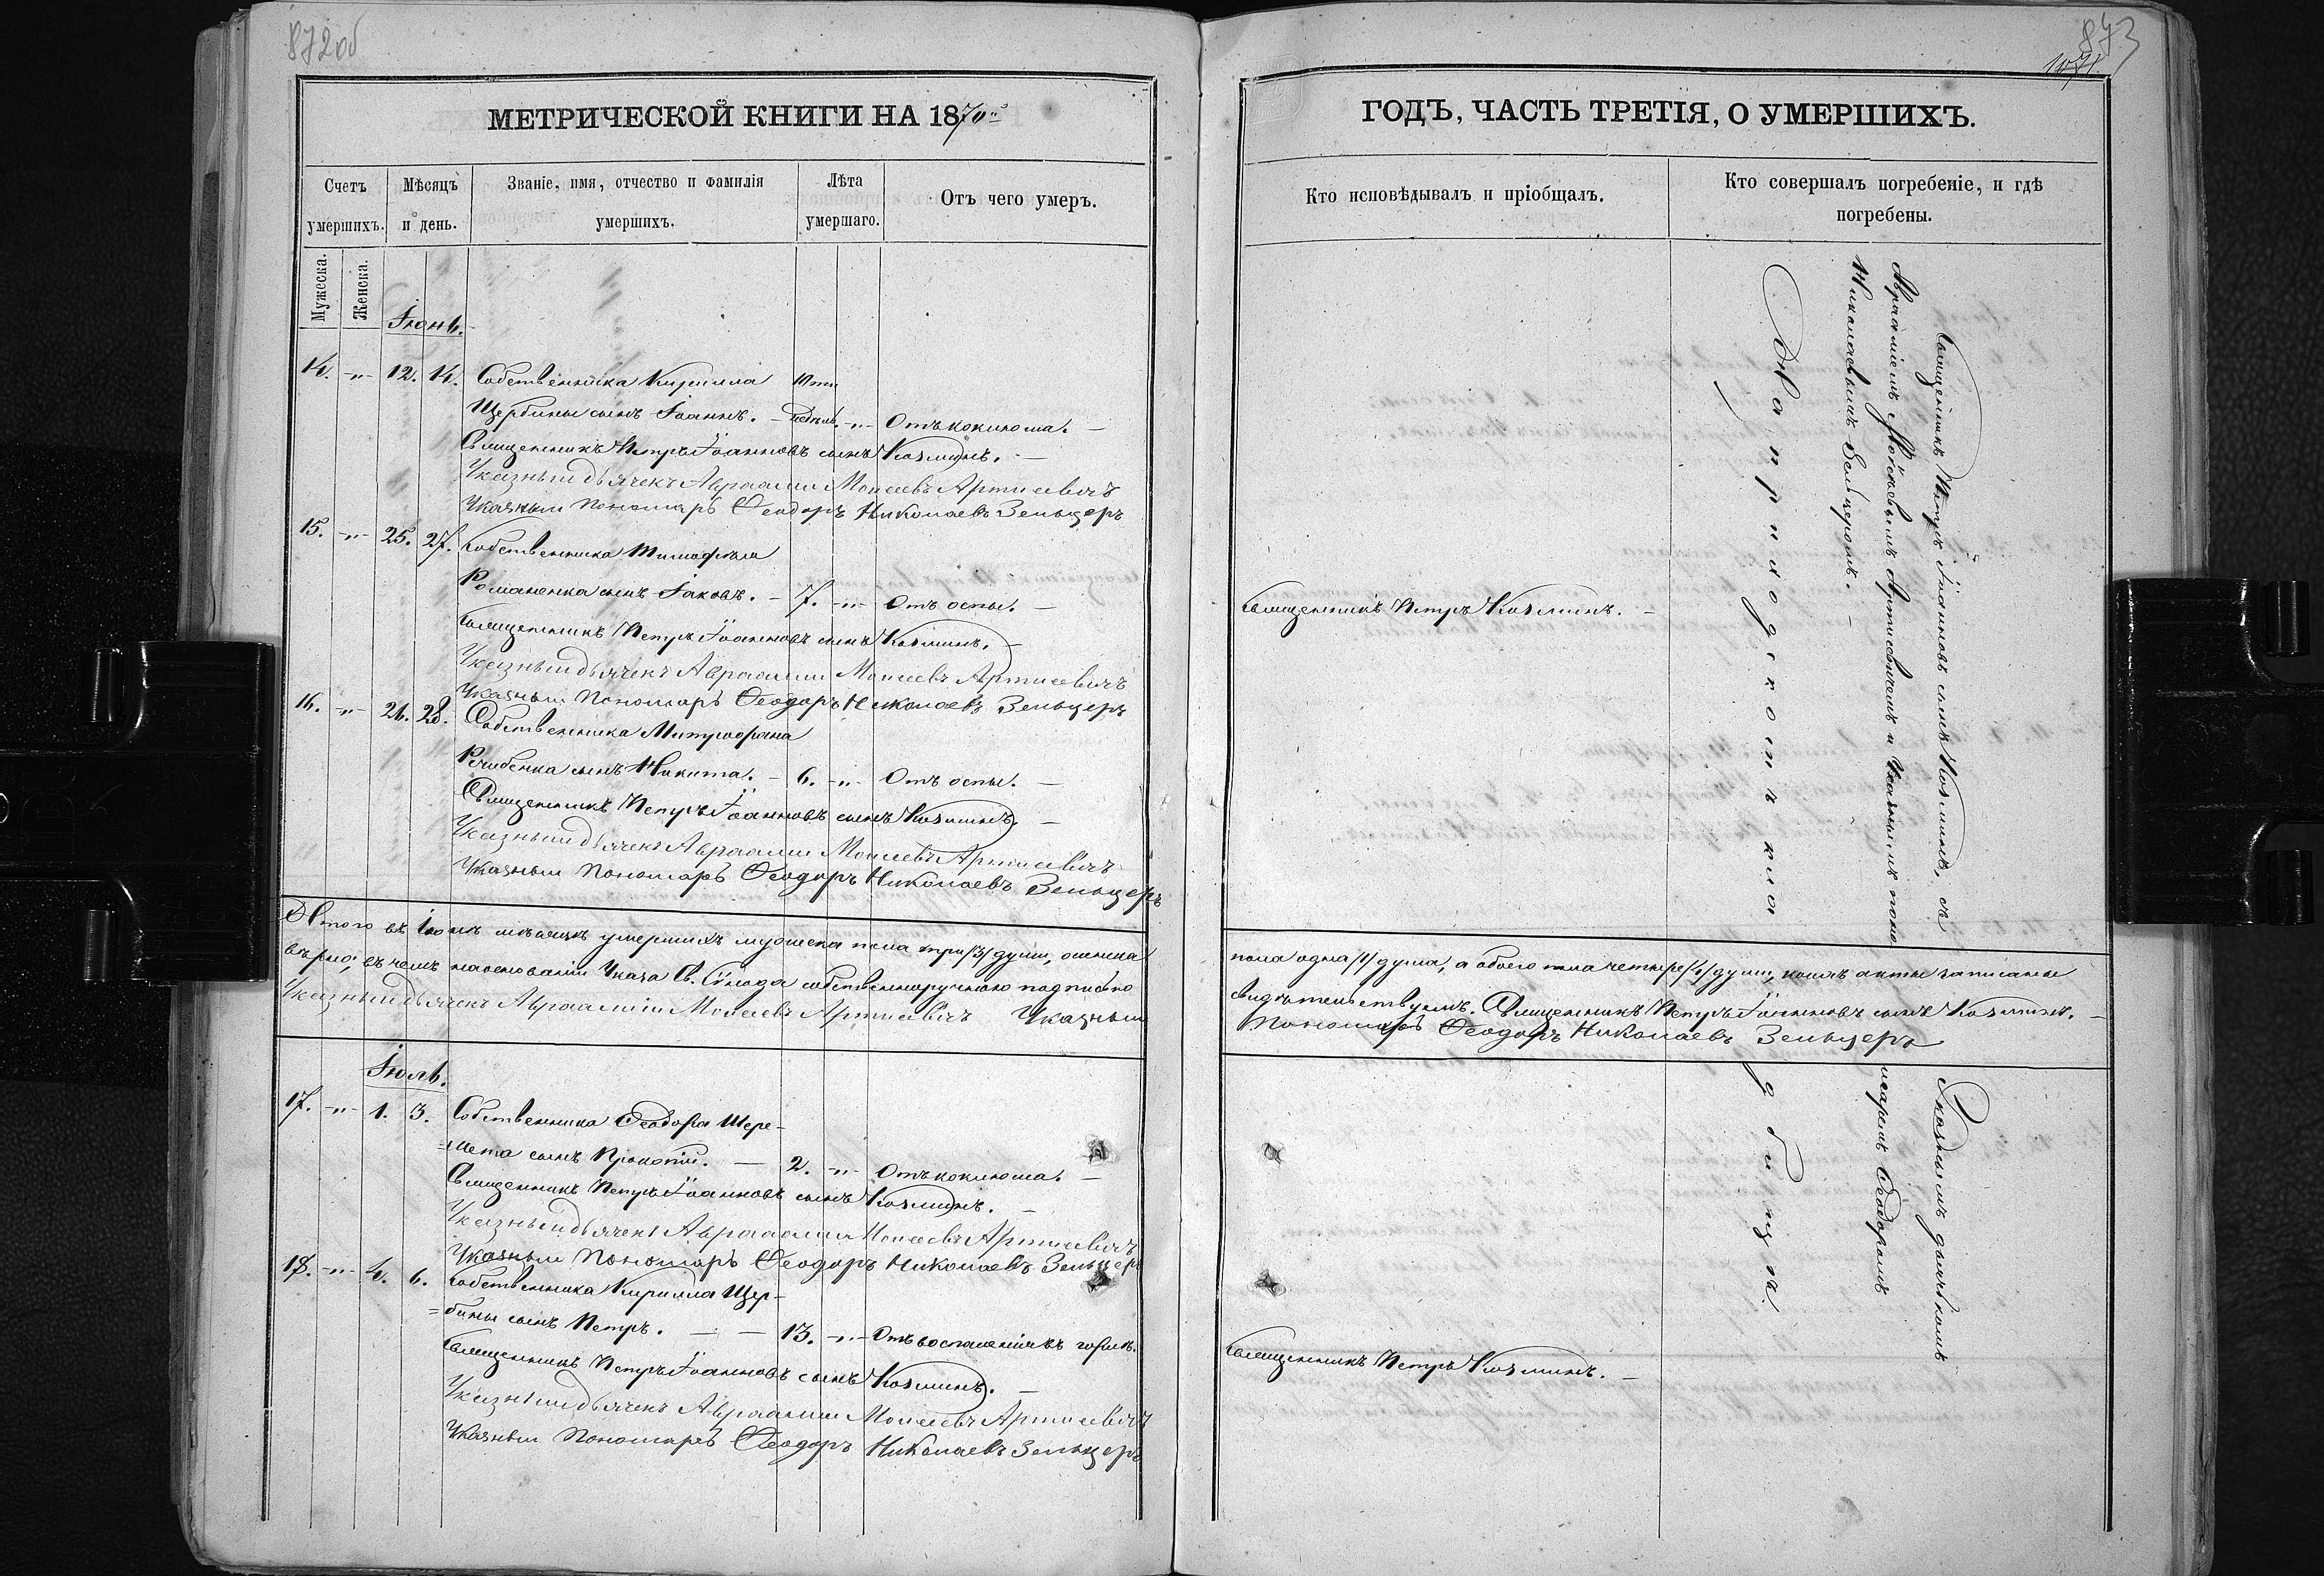 872об
МЕТРИЧЕСКОЙ КНИГИ НА 1870
Счетъ умершихъ.
Мѣсяцъ и день.
Званіе, имя, отчество и фамилія умершихъ.
Лѣта умершаго.
Отъ чего умеръ.
Мужеска.
Женска.
Іюнь.
14. -"- 12. 14. Собственника Кирилла 10ти
Щербины сынъ Іоаннъ. недѣль. -"- Отъ коклюша.
Священникъ Петръ Іоанновъ сынъ Козминъ.
Указный дьячекъ Авраамій Моисеевъ Артисевичъ
Указный Пономарь Ѳеодоръ Николаевъ Зельцеръ
15. -"- 25. 27. Собственника Тимофѣя
Романенка сынъ Іаковъ. - 7. -"- Отъ оспы.
Священникъ Петръ Іоанновъ сынъ Козминъ.
Указный дьячекъ Авраамій Моисеевъ Артисевичъ
Указный Пономарь Ѳеодоръ Николаевъ Зельцеръ
16. -"- 26. 28. Собственника Митрофана
сынъ Никита. - 6. -"- Отъ оспы.
Священникъ Петръ Іоанновъ сынъ Козминъ.
Указный дьячекъ Авраамій Моисеевъ Артисевичъ
Указный Пономарь Ѳеодоръ Николаевъ Зельцеръ
Итого въ Іюнѣ мѣсяцѣ умершихъ мужеска пола три /3/ души, женска
вѣрно; въ чемъ на основаніи Указа Св. Сѵнода собственноручною подписью
Указный дьячекъ Авраамій Моисеевъ Артисевичъ Указный
Іюль.
17. -"- 1. 3. Собственника Ѳеодора Шере-
=мета сынъ Прокопій. - 2. -"- Отъ коклюша.
Священникъ Петръ Іоанновъ сынъ Козминъ.
Указный дьячекъ Авраамій Моисеевъ Артисевичъ
Указный Пономарь Ѳеодоръ Николаевъ Зельцеръ
18. -"- 4. 6. Собственника Кирилла Щер-
=бины сынъ Петръ. - - 13. -"- Отъ воспаленія въ горлѣ.
Священникъ Петръ Іоанновъ сынъ Козминъ.
Указный дьячекъ Авраамій Моисеевъ Артисевичъ
Указный Пономарь Ѳеодоръ Николаевъ Зельцеръ
873
ГОДЪ, ЧАСТЬ ТРЕТІЯ, О УМЕРШИХЪ.
Кто исповѣдывалъ и пріобщалъ.
Кто совершалъ погребеніе, и гдѣ погребены.
Священникъ Петръ Козминъ.
Священникъ Петръ Іоанновъ сынъ Козминъ, съ
Указнымъ дьячкомъ
Аврааміемъ Моисеевымъ Артисевичемъ и Указнымъ поно
маремъ Ѳеодоромъ
Николаевымъ Зельцеромъ.
На приходскомъ кла
дбищѣ.
пола одна /1/ душа, а обоего пола четыре /4/ души, коихъ акты записаны
свидѣтельствуемъ. Священникъ Петръ Іоанновъ сынъ Козминъ.
Пономарь Ѳеодоръ Николаевъ Зельцеръ
Священникъ Петръ Козминъ.